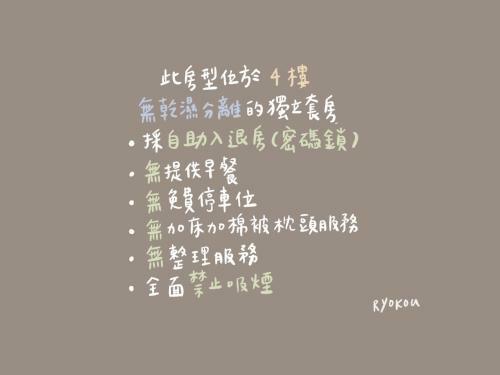 此房型位於 4樓
無乾濕分離的獨立套房
• 採自助入退房(密碼鎖)
• 無提供早餐
• 無免費停車位
• 無加床加棉被枕頭服務
• 無整理服務
• 全面禁止吸煙
RYOKOU